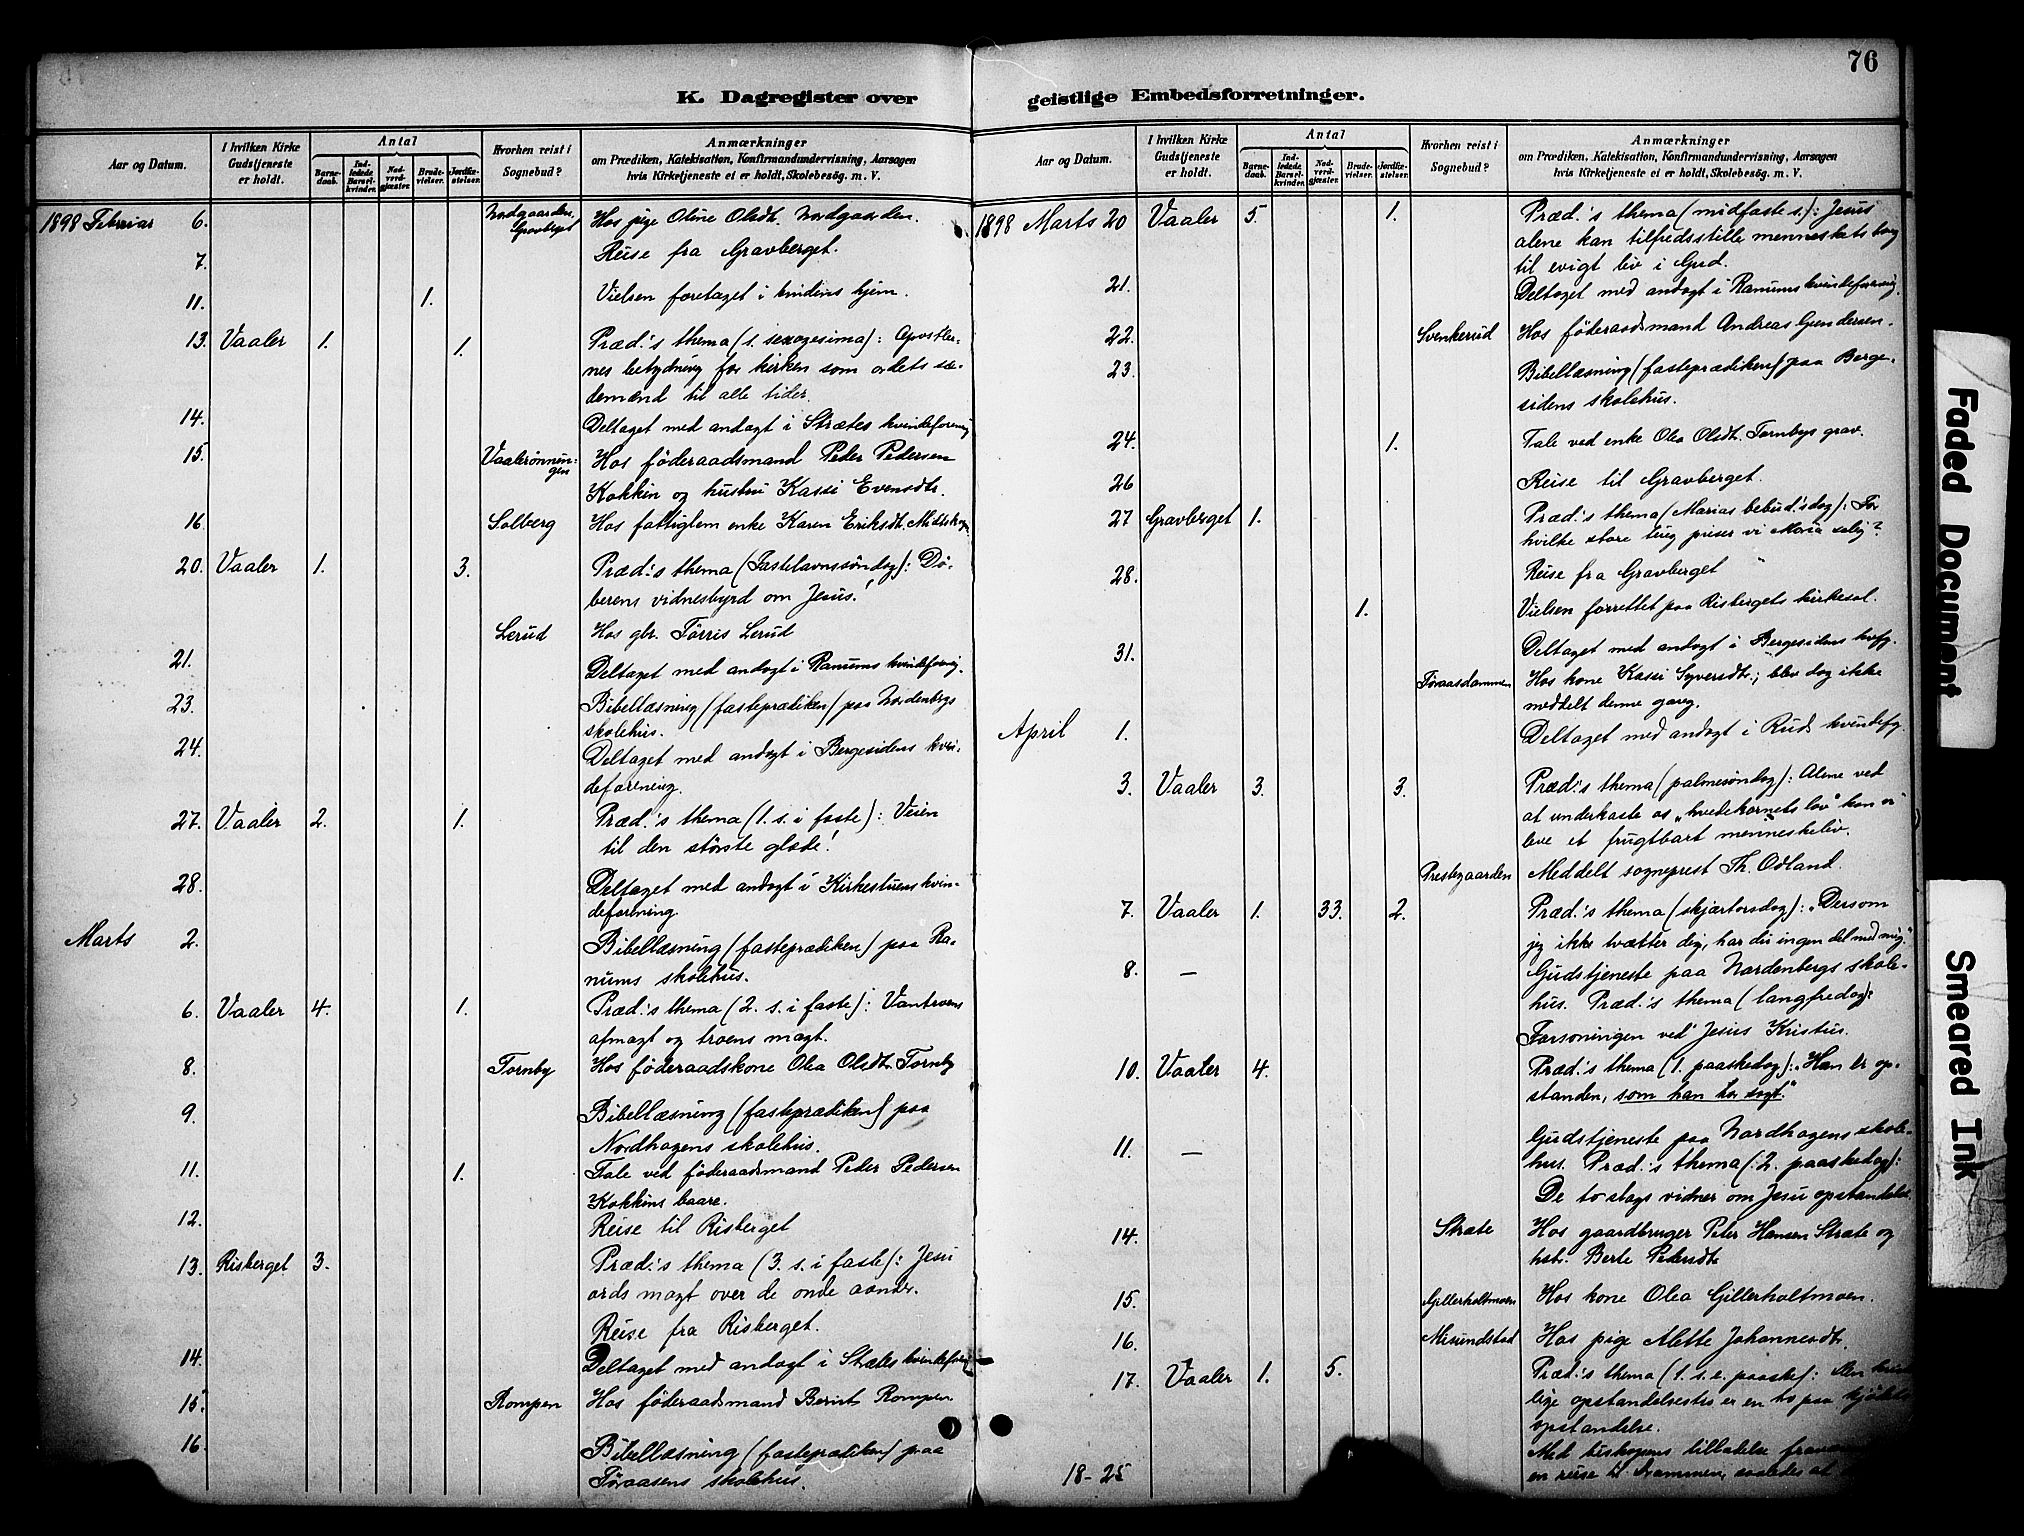 76
K. Dagregister over
Aar og Datum.
I hvilken Kirke Gudstjeneste er holdt.
Antal
Barnedaab.
Indledede Barselkvinder.
Nadverdgjæster.
Brudevielser.
Jordfæstelser.
Hvorhen reist i Sognebud?
Anmærkninger
om Prædiken, Katekisation, Konfirmandundervisning, Aarsagen
hvis Kirketjeneste ei er holdt, Skolebesøg. m. V.
1898 Februar 6. Nordgaarden, Gravberget Hos pige Oline Olsdt. Nordgaarden.
7. Reise fra Gravberget.
11. 1. Vielsen foretaget i hjem.
13. Vaaler 1. 1. Præd.'s thema (s. sexagesima): Apostler-
nes betydning for kirken som ordets sæ-
demænd til alle tider.
14. Deltaget med andagt i Strætes kvindeforenig
15. Vaalerønnin-gen Hos føderaadsmand Peder Pedersen
Kokkin og hustru Kassi Evensdtr.
16. Solberg Hos fattiglem enke Karen Eriksdt.
20. Vaaler 1. 3. Præd.'s thema (Fastelavnssøndag): Dø-
berens vidnesbyrd om Jesus!
Lerud Hos gbr. Tørris Lerud
21. Deltaget med andagt i Ranums kvindeforenig.
23. Bibellæsning (fasteprædiken) paa Nordenbergs
skolehus.
24. Deltaget med andagt i Bergesidens kvin-
deforening.
27. Vaaler 2. 1. Præd.'s thema (1. s. i faste): Veien
til den største glæde!
28. Deltaget med andagt i Kirkestuens kvin-
deforening.
Marts 2. Bibellæsning (fasteprædiken) paa Ra-
nums skolehus.
6. Vaaler 4. 1. Præd.'s thema (2. s. i faste): Vantroens
afmagt og troens magt.
8. Tornby Hos føderaadskone Olea Olsdtr. Tornby
9. Bibellæsning (fasteprædiken) paa
Nordhagens skolehus.
11. 1. Tale ved føderaadsmand Peder Pedersen
Kokkins baare.
12. Reise til Risberget
13. Risberget 3. Præd.'s thema (3. s. i faste): Jesu
ords magt over de onde aander.
Reise fra Risberget.
14. Deltaget med andagt i Strætes kvindeforenig
15. Rompen Hos føderaadsmand Bernt Rompen
16. Bibellæsning (fasteprædiken) paa
Føraasens skolehus.
geistlige Embedsforretninger.
Aar og Datum.
I hvilken Kirke Gudstjeneste er holdt.
Antal
Barnedaab.
Indledede Barselkvinder.
Nadverdgjæster.
Brudevielser.
Jordfæstelser.
Hvorhen reist i Sognebud?
Anmærkninger
om Prædiken, Katekisation, Konfirmandundervisning, Aarsagen
hvis Kirketjeneste ei er holdt, Skolebesøg. m. V.
1898 Marts 20 Vaaler 5. 1. Præd.'s thema (midfaste s.): Jesus
alene kan tilfredsstille menneskets
til evigt liv i Gud.
21. Deltaget med andagt i Ranums kvindeforenig.
22. Svenkerud Hos føderaadsmand Andreas Gundersen.
23. Bibellæsning (fasteprædiken) paa Berge-
sidens skolehus.
24. 1. Tale ved enke Olea Olsdt. Tornbys grav.
26 Reise til Gravberget.
27 Gravberget 1. Præd.'s thema (Marias bebud.'sdag): For
hvilke store ting priser vi Maria salig?
28. Reise fra Gravberget
1. Vielsen forrettet paa Risbergets kirkesal.
31. Deltaget med andagt i Bergesidens kvfg.
Føraasdammen Hos kone Kassi Syversdtr.; blev dog ikke
meddelt denne gang.
April 1. Deltaget med andagt i Ruds kvindefg.
3. Vaaler 3. 3. Præd.'s thema (palmesøndag): Alene ved
at underkaste os „hvedekornets lov" kan vi
leve et frugtbart menneskeliv.
Prestegaarden Meddelt sogneprest Th. Odland.
7. Vaaler 1. 33. 2. Præd.'s thema (skjærtorsdag): „Dersom
jeg ikke tvætter dig, har du ingen del med mig."
8. — Gudstjeneste paa Nordenbergs skole-
hus. Præd.'s thema (langfredag):
Forsoningen ved Jesus Kristus.
10. Vaaler 4. Præd.'s thema (1. paaskedag): „Han er op-
standen, som han har sagt."
11. — Gudstjeneste paa Nordhagens skole-
hus. Præd.'s thema (2. paaskedag):
De to slags vidner om Jesu opstandelse.
14. Stræte Hos gaardbruger Peter Hansen Stræte og
hst. Berte Pedersdt.
15. Gillerholtmoen Hos kone Olea Gillerholtmoen.
16. Misundstad Hos pige Alette Johannesdtr.
17. Vaaler 1. 5. Præd.'s thema (1. s. e. paaske): Den
lige opstandelsestro er en tro paa kjødets
opstandelse.
18-25 Med biskopens tilladelse
en reise til Drammen, saaledes at
Faded Document
Smeared Ink